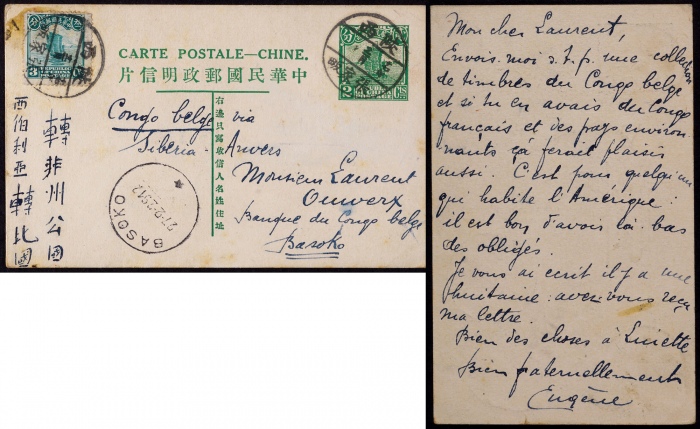 CARTE POSTALE—CHINE.
片信明政郵國民華中
右邊只寫收信人名姓住址
3
2
CTS
Congo belge via
Siberia - Anvers
Monsieur Laurent
Ouwerx
Banque du Congo belge
Basoko
BASOKO
轉非州公國
西伯利亞轉比國
Mon cher Laurent,
Envois-moi s.t.p. une collection
de timbres du Congo belge
et si tu en avais du Congo
français et des pays environ
nants ça ferait plaisir
aussi. C'est pour quelqu'un
qui habite l'Amérique:
il est bon d'avoir là-bas
des obligés.
Je vous ai ecrit il y a une
huitaine: avez-vous reçu
ma lettre.
Bien des choses à Luciette
Bien fraternellement
Eugène